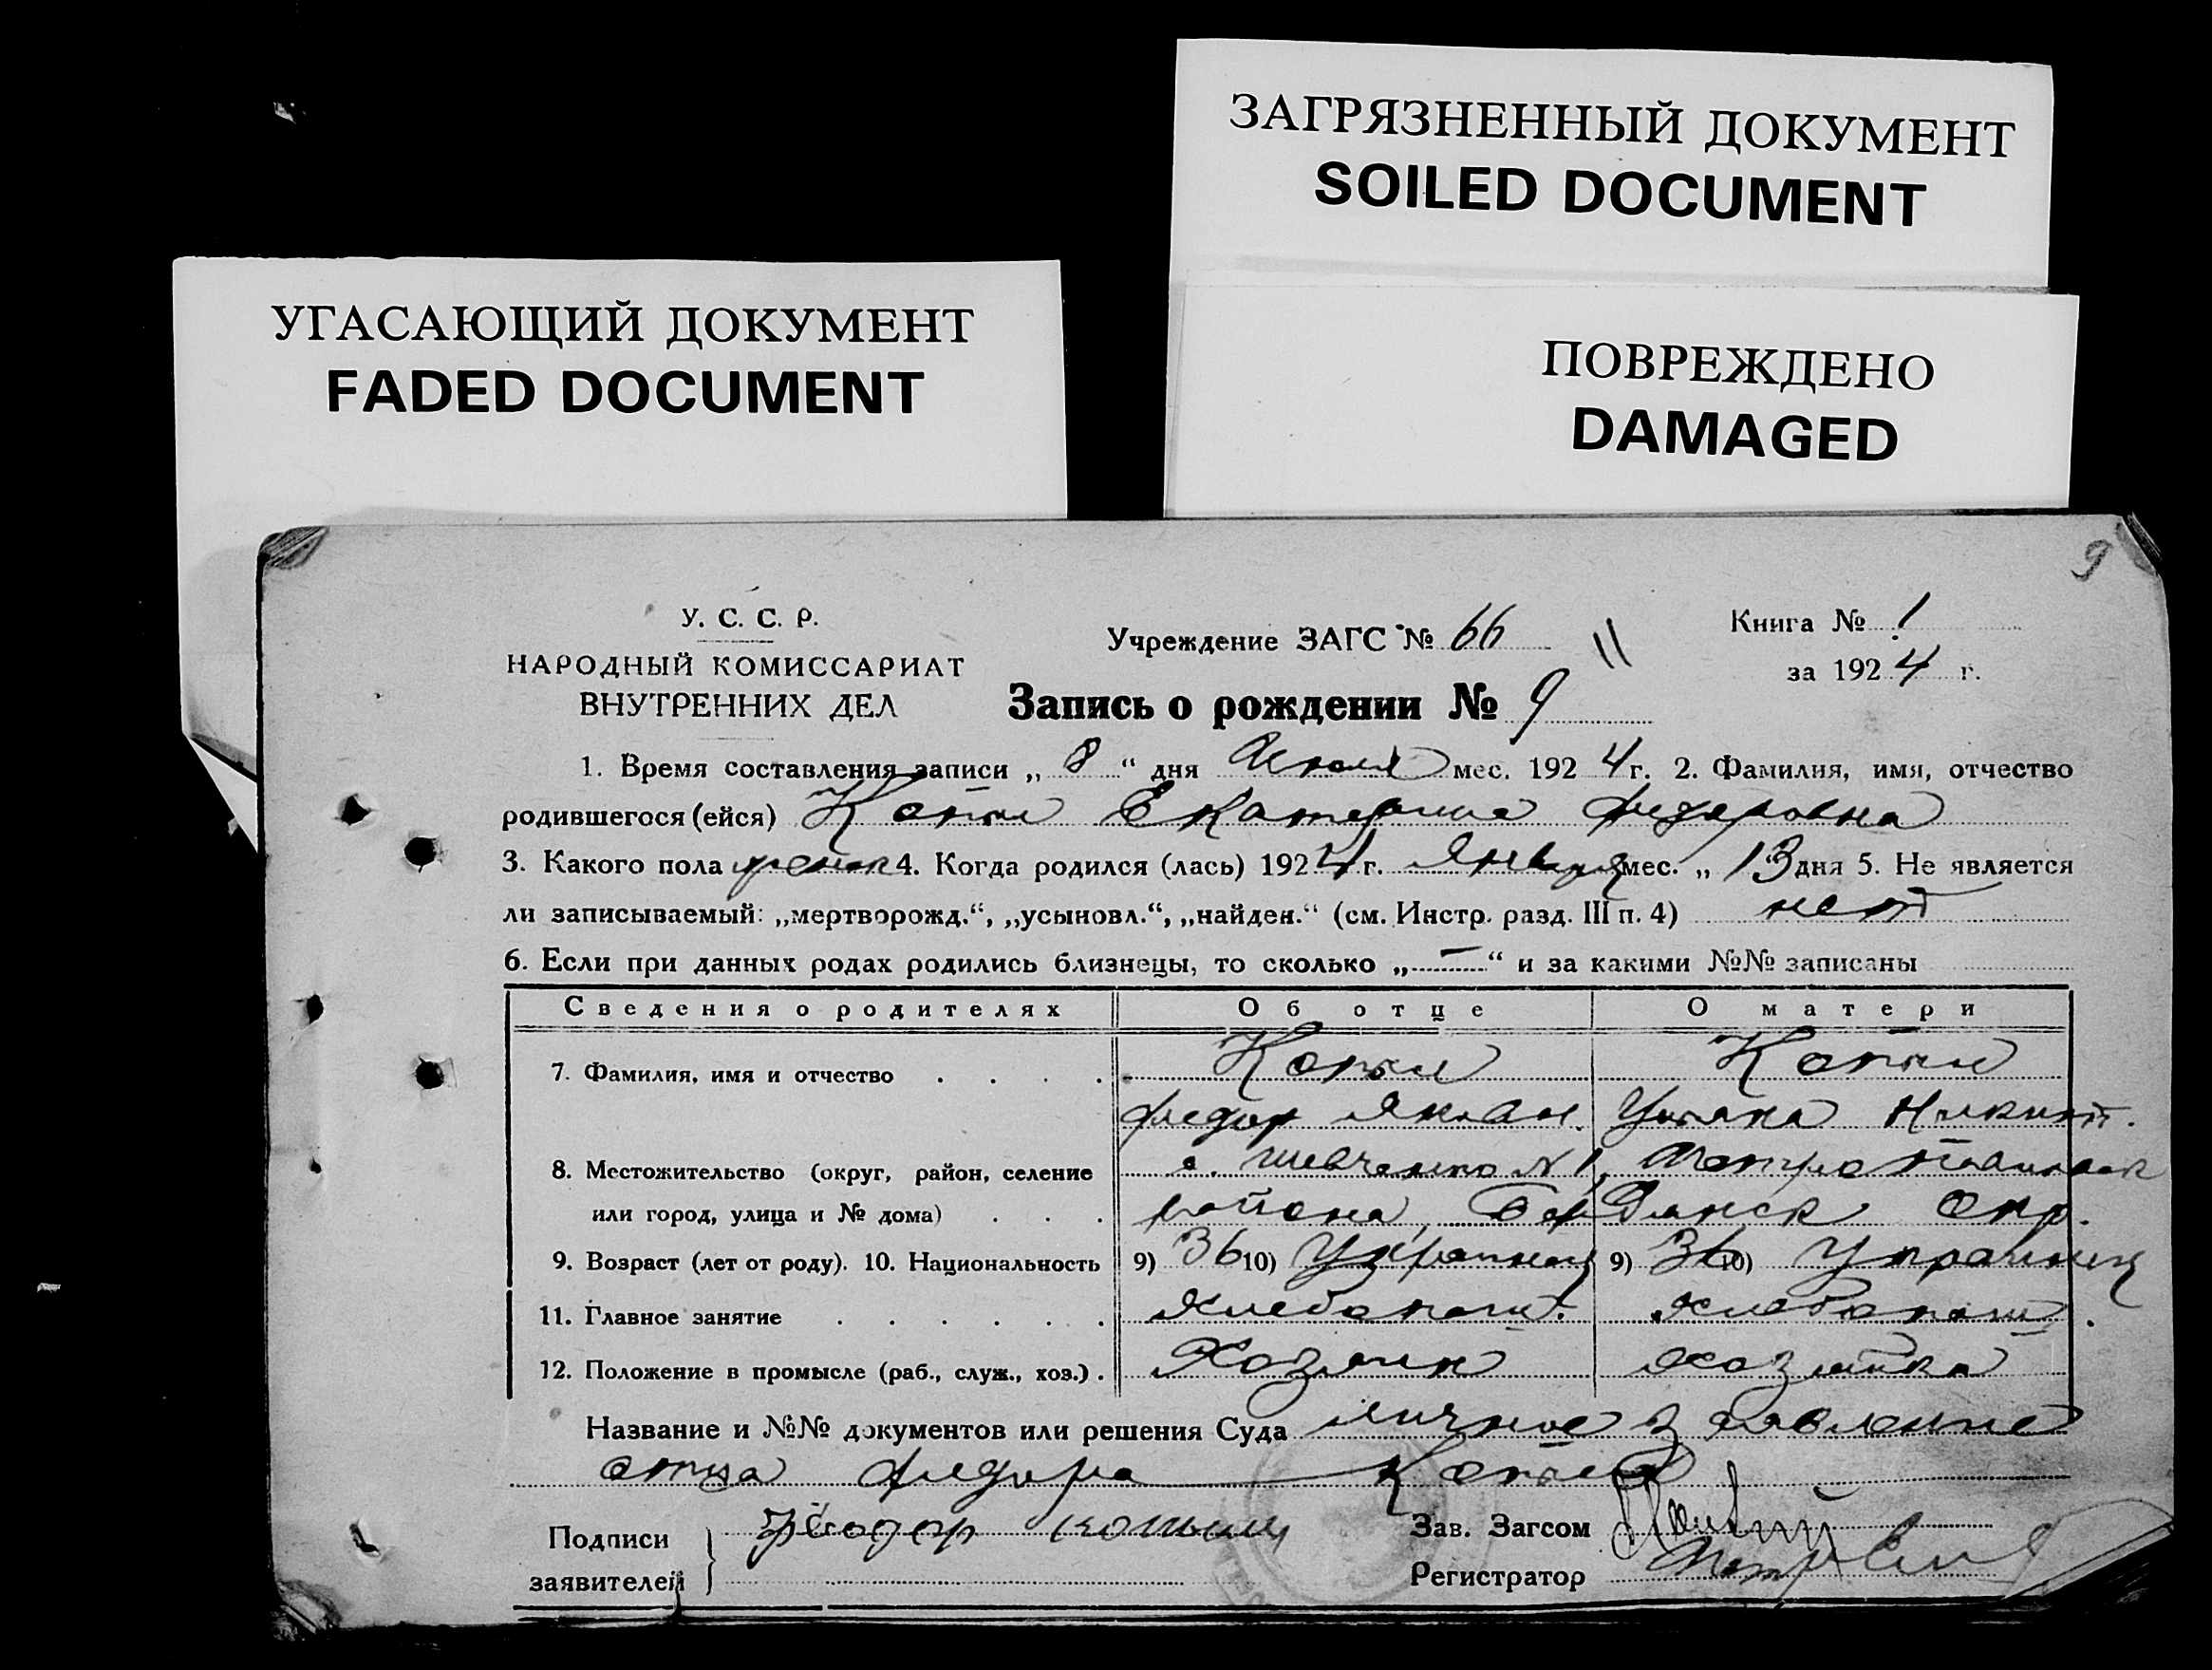 ЗАГРЯЗНЕННЫЙ ДОКУМЕНТ
SOILED DOCUMENT
УГАСАЮЩИЙ ДОКУМЕНТ
FADED DOCUMENT
ПОВРЕЖДЕНО
DAMAGED
9
У. С. С. Р.
НАРОДНЫЙ КОМИССАРИАТ
ВНУТРЕННИХ ДЕЛ
Учреждение ЗАГС № 66
Книга № 1
за 1924 г.
Запись о рождении № 9
1. Время составления записи „ 8 “ дня мес. 1924 г. 2. Фамилия, имя, отчество
родившегося (ейся) Копыл Екатерина Федоровна
3. Какого пола женск 4. Когда родился (лась) 1924 г. Января мес. „ 13 дня 5. Не является
ли записываемый: „мертворожд.“, „усыновл.“, „найден.“ (см. Инстр. разд. III п. 4) нет
6. Если при данных родах родились близнецы, то сколько „ — “ и за какими №№ записаны
Сведения о родителях Об отце О матери
7. Фамилия, имя и отчество Копыл Копыл
Федор Яковл. Ульяна Никит.
8. Местожительство (округ, район, селение с. Шевченко N 1,
или город, улица и № дома) района, Бердянск окр.
9. Возраст (лет от роду). 10. Национальность 9) 36 10) Украинец 9) 36 10) Украинец
11. Главное занятие Хлебопаш. Хлебопаш.
12. Положение в промысле (раб., служ., хоз.) Хозяин Хозяйка
Название и №№ документов или решения Суда личное заявление
отца Федора Копыл
Подписи
заявителей
Фёодор копыл
Зав. Загсом
Регистратор